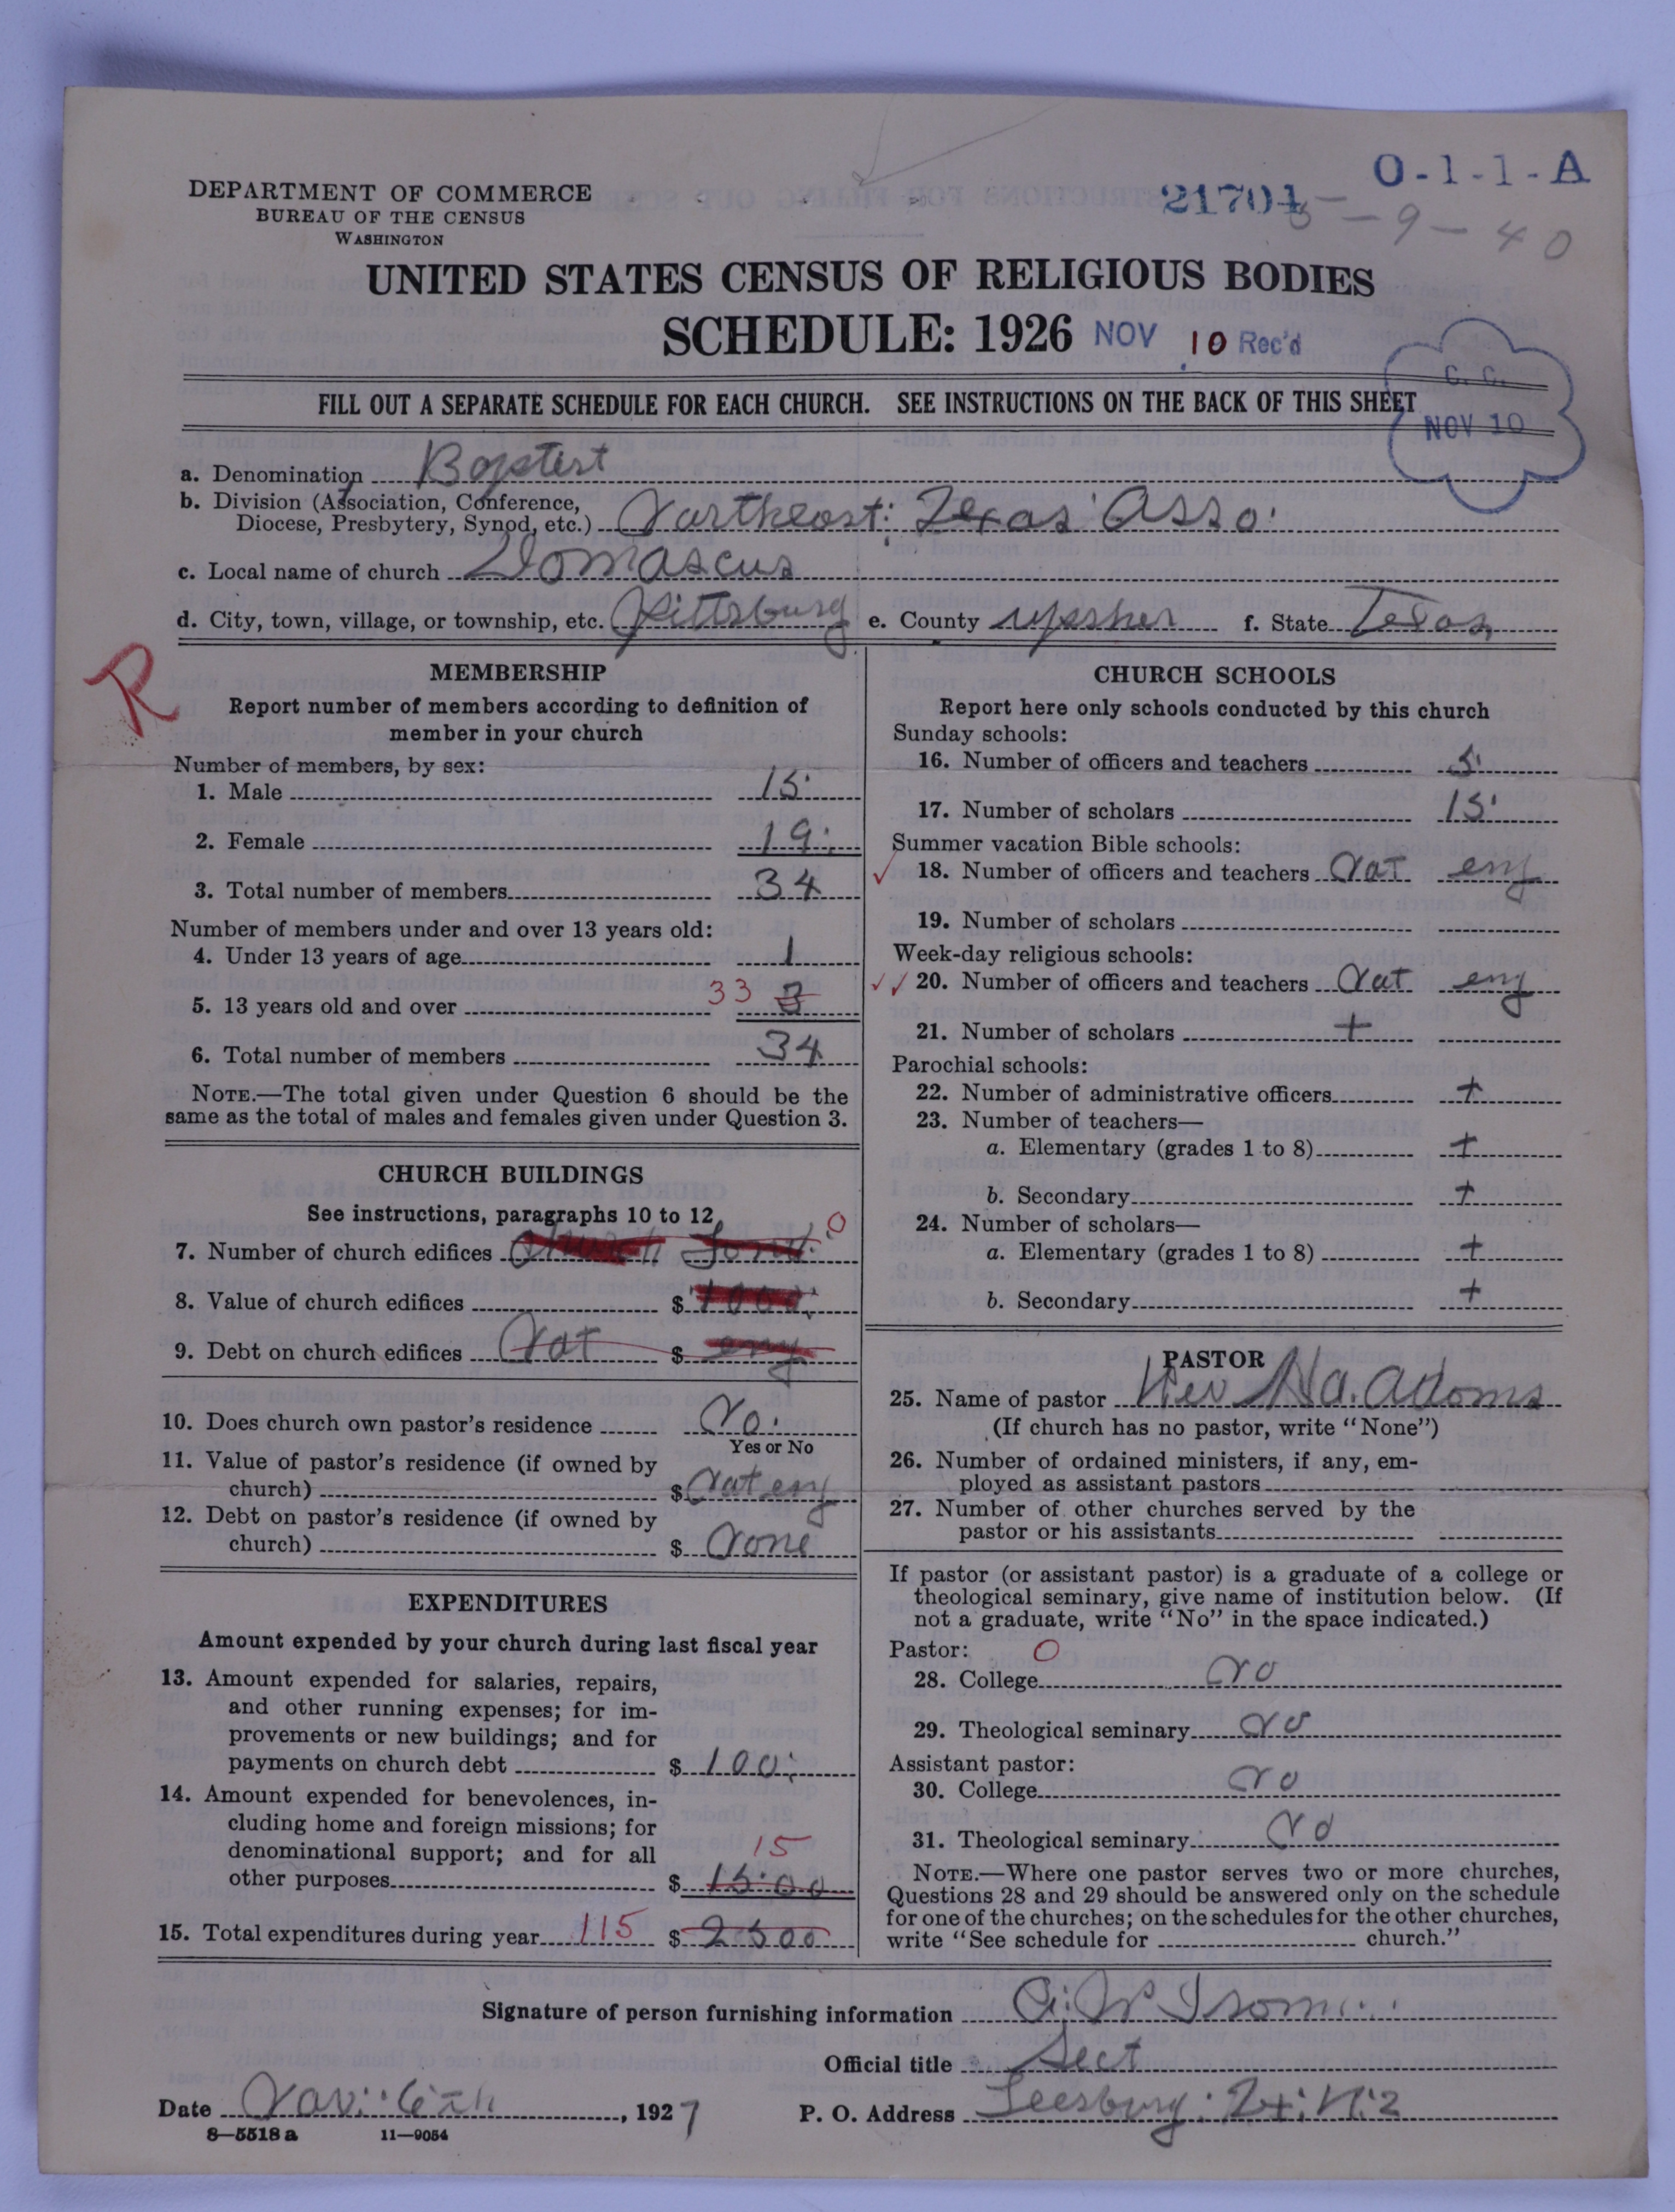 O-1-1-A
DEPARTMENT OF COMMERCE
BUREAU OF THE CENSUS
WASHINGTON
21701
5-9-40
UNITED STATES CENSUS OF RELIGIOUS BODIES
SCHEDULE: 1926 NOV 10 Rec'd
C. C.
NOV 10
FILL OUT A SEPARATE SCHEDULE FOR EACH CHURCH. SEE INSTRUCTIONS ON THE BACK OF THIS SHEET
a. Denomination Baptist
b. Division (Association, Conference,
Diocese, Presbytery, Synod, etc.) Northeast: Texas Asso.
c. Local name of church Domascus
d. City, town, village, or township, etc. Pittsburg e. County upsher f. State Texas
R
MEMBERSHIP
Report number of members according to definition of
member in your church
Number of members, by sex:
1. Male 15
2. Female 19
3. Total number of members 34
Number of members under and over 13 years old:
4. Under 13 years of age 1
5. 13 years old and over 33 3
6. Total number of members 34
NOTE.—The total given under Question 6 should be the
same as the total of males and females given under Question 3.
CHURCH BUILDINGS
See instructions, paragraphs 10 to 12
7. Number of church edifices church 0
8. Value of church edifices $ 1000
9. Debt on church edifices Not $ eny
10. Does church own pastor's residence No.
Yes or No
11. Value of pastor's residence (if owned by
church) $ Not eny
12. Debt on pastor's residence (if owned by
church) $ None
EXPENDITURES
Amount expended by your church during last fiscal year
13. Amount expended for salaries, repairs,
and other running expenses; for im-
provements or new buildings; and for
payments on church debt $ 100
14. Amount expended for benevolences, in-
cluding home and foreign missions; for
denominational support; and for all 15
other purposes $ 15.00
15. Total expenditures during year 115 $ 2500
CHURCH SCHOOLS
Report here only schools conducted by this church
Sunday schools:
16. Number of officers and teachers 5
17. Number of scholars 15
Summer vacation Bible schools:
✓ 18. Number of officers and teachers Not eny
19. Number of scholars
Week-day religious schools:
✓✓ 20. Number of officers and teachers Not eny
21. Number of scholars +
Parochial schools:
22. Number of administrative officers +
23. Number of teachers—
a. Elementary (grades 1 to 8) +
b. Secondary +
24. Number of scholars—
a. Elementary (grades 1 to 8) +
b. Secondary +
PASTOR
25. Name of pastor Rev Adams
(If church has no pastor, write "None")
26. Number of ordained ministers, if any, em-
ployed as assistant pastors
27. Number of other churches served by the
pastor or his assistants
If pastor (or assistant pastor) is a graduate of a college or
theological seminary, give name of institution below. (If
not a graduate, write "No" in the space indicated.)
Pastor: 0
28. College No
29. Theological seminary No
Assistant pastor:
30. College No
31. Theological seminary No
NOTE.—Where one pastor serves two or more churches,
Questions 28 and 29 should be answered only on the schedule
for one of the churches; on the schedules for the other churches,
write "See schedule for church."
Signature of person furnishing information Isom
Official title Sect
Date Nov. 6th, 1927 P. O. Address Leesburg. Tx. R. 2
8—5518 a 11—9054